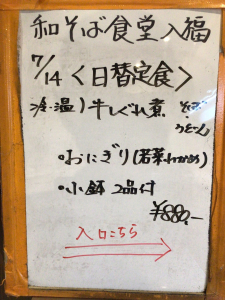 和そば食堂 入福
7/14 <日替定食>
冷・温) 牛しぐれ煮 そば
うどん
・おにぎり(若菜わかめ)
・小鉢 2品付
¥880.-
入口こちら